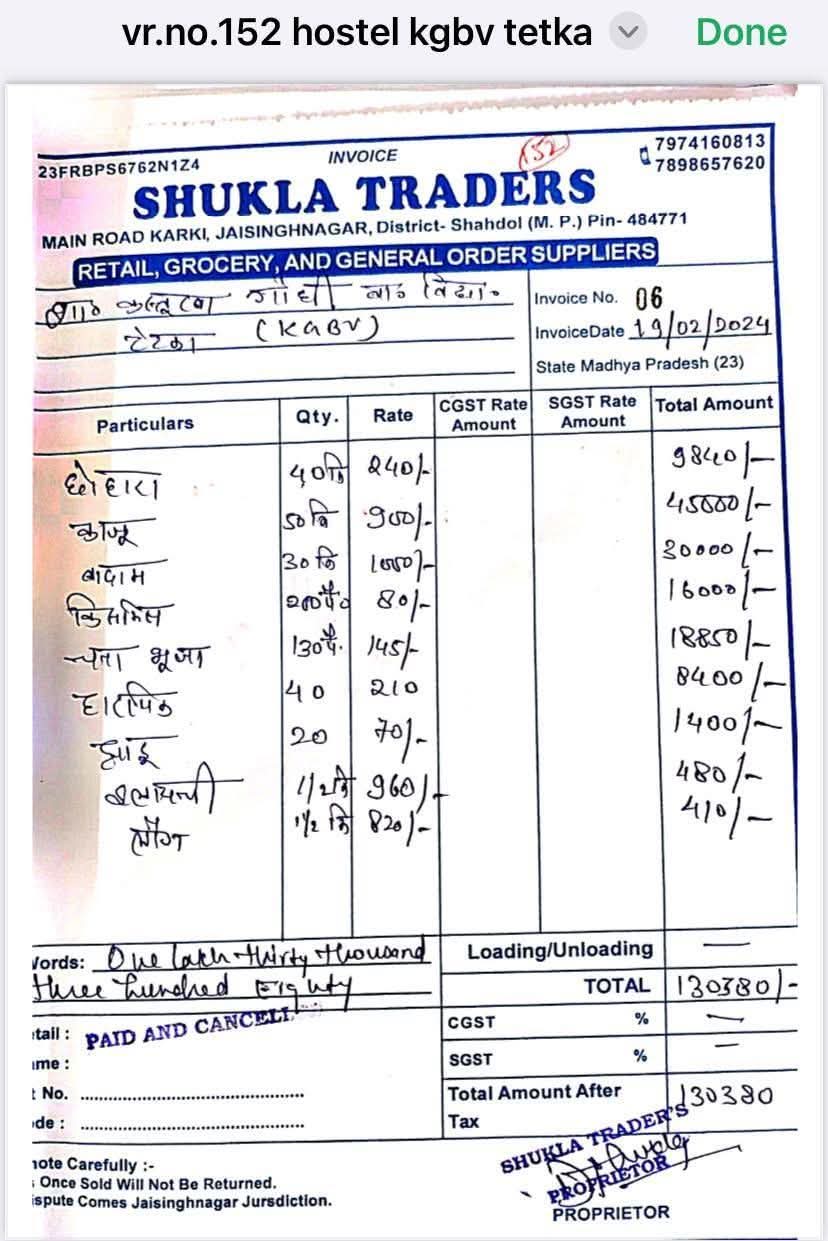 vr.no.152 hostel kgbv tetka Done
23FRBPS6762N1Z4 INVOICE 152 7974160813
7898657620
SHUKLA TRADERS
MAIN ROAD KARKI, JAISINGHNAGAR, District- Shahdol (M. P.) Pin- 484771
RETAIL, GROCERY, AND GENERAL ORDER SUPPLIERS
गाँधी बा० विद्या० Invoice No. 06
टेटका (KGBV) InvoiceDate 19/02/2024
State Madhya Pradesh (23)
Particulars Qty. Rate CGST Rate Amount SGST Rate Amount Total Amount
छोहारा 40 कि 240/- 9840/-
काजू 50 कि 900/- 45000/-
बादाम 30 कि 1000/- 30000/-
किसमिस 200 पै० 80/- 16000/-
चना भूजा 130 पै. 145/- 18850/-
हारपिक 40 210 8400/-
झाडू 20 70/- 1400/-
1/2 कि 960/- 480/-
लौंग 1/2 कि 820/- 410/-
Words: One lakh thirty thousand Loading/Unloading —
three hundred Eighty TOTAL 130380/-
etail : PAID AND CANCELL CGST % —
ame : SGST % —
t No. Total Amount After Tax 130380
ode :
SHUKLA TRADER'S
note Carefully :-
s Once Sold Will Not Be Returned. PROPRIETOR
ispute Comes Jaisinghnagar Jursdiction.
PROPRIETOR